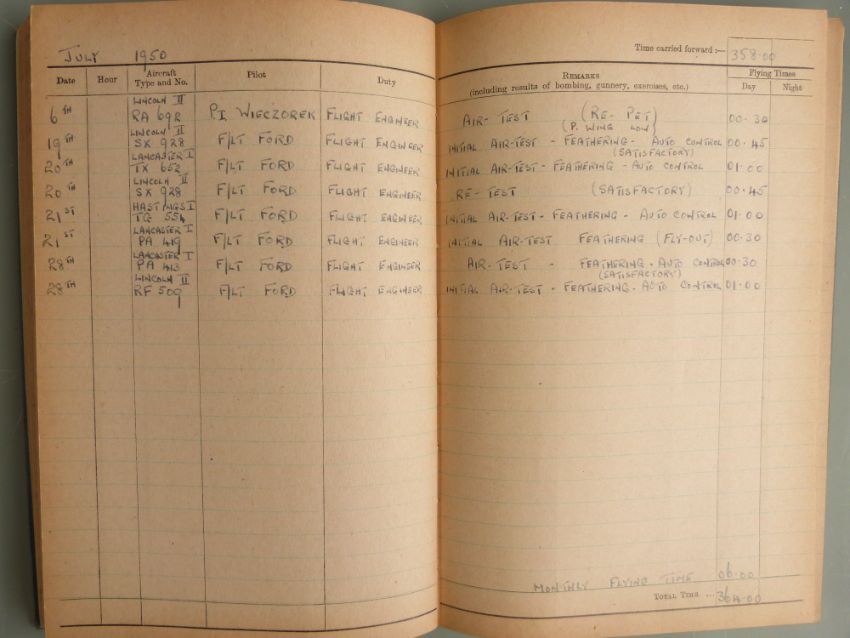 JULY 1950
Time carried forward :— 358·00
Date Hour Aircraft Type and No. Pilot Duty REMARKS (including results of bombing, gunnery, exercises, etc.) Flying Times Day Night
LINCOLN II
6TH RA 692 P.I WIECZOREK FLIGHT ENGINEER AIR-TEST (RE-PET) 00·30
(P. WING LOW)
LINCOLN II
19TH SX 928 F/LT FORD FLIGHT ENGINEER INITIAL AIR-TEST - FEATHERING - AUTO CONTROL 00·45
(SATISFACTORY)
LANCASTER I
20TH TX 652 F/LT FORD FLIGHT ENGINEER INITIAL AIR-TEST - FEATHERING - AUTO CONTROL 01·00
LINCOLN II
20TH SX 928 F/LT FORD FLIGHT ENGINEER RE-TEST (SATISFACTORY) 00·45
HASTINGS I
21ST TG 554 F/LT FORD FLIGHT ENGINEER INITIAL AIR-TEST - FEATHERING - AUTO CONTROL 01·00
LANCASTER I
21ST PA 419 F/LT FORD FLIGHT ENGINEER INITIAL AIR-TEST FEATHERING (FLY-OUT) 00·30
LANCASTER I
28TH PA 413 F/LT FORD FLIGHT ENGINEER AIR-TEST - FEATHERING - AUTO CONTROL 00·30
(SATISFACTORY)
LINCOLN II
28TH RF 509 F/LT FORD FLIGHT ENGINEER INITIAL AIR-TEST - FEATHERING - AUTO CONTROL 01·00
MONTHLY FLYING TIME 06·00
TOTAL TIME ... 364·00